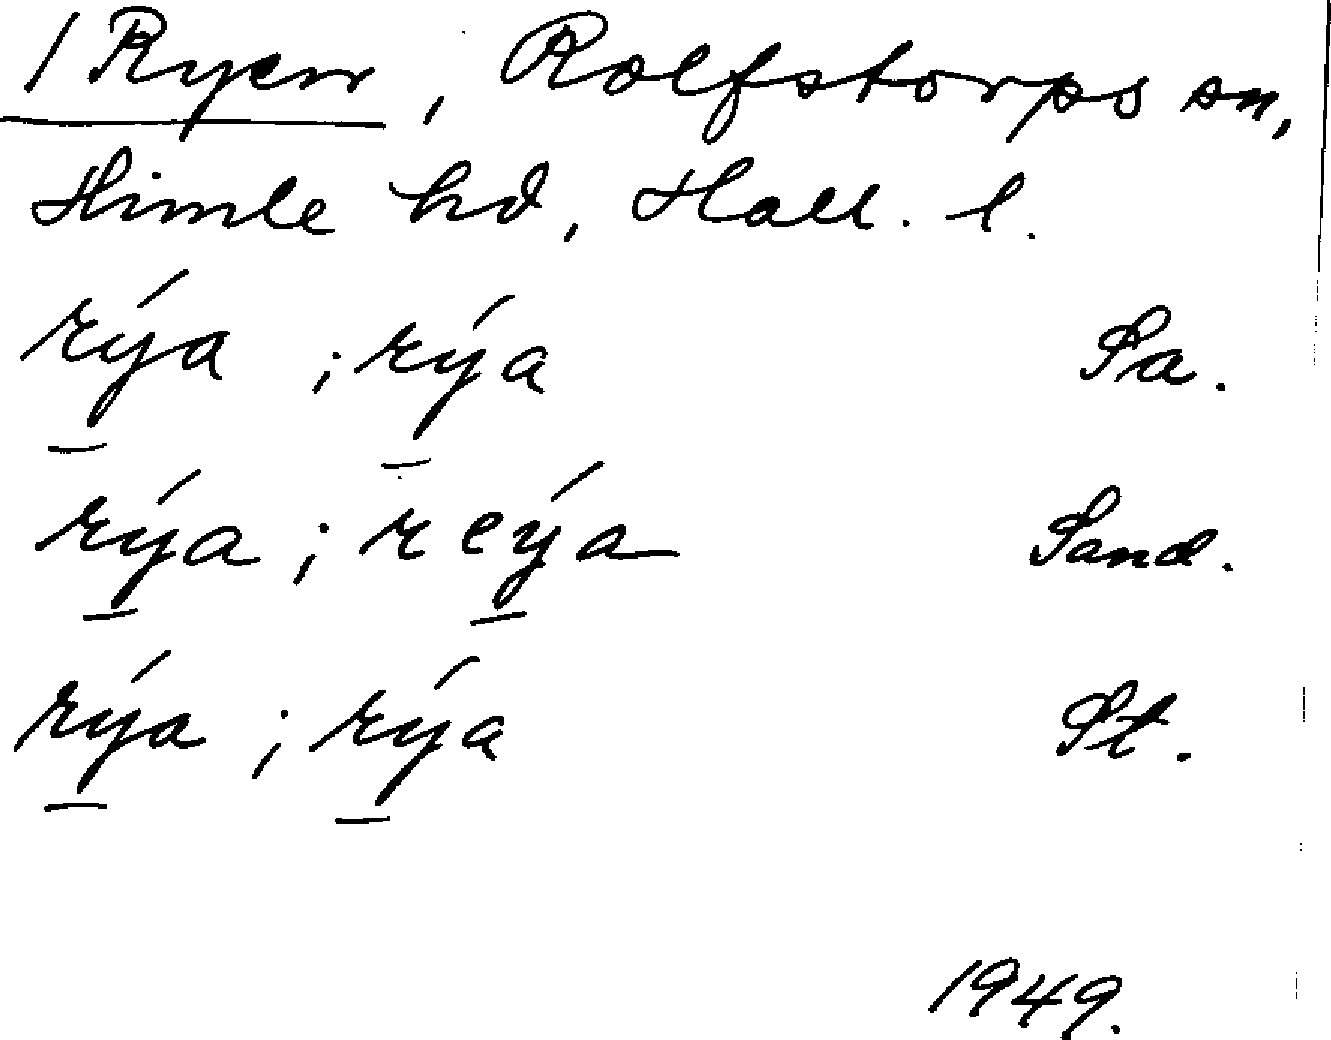 / Ryen, Rolfstorps sn,
Himle hd, Hall. l.
rýa ; rýa Sa.
rýa ; reýa Sand.
rýa ; rýa St.
1949.